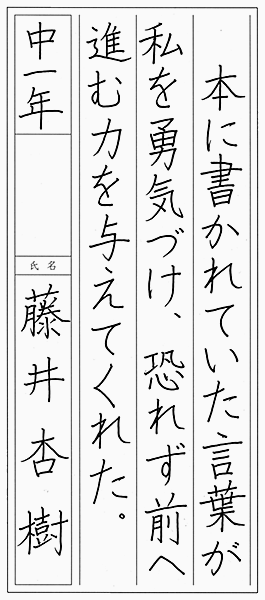 本に書かれていた言葉が
私を勇気づけ、恐れず前へ
進む力を与えてくれた。
中一年
氏名
藤井杏樹